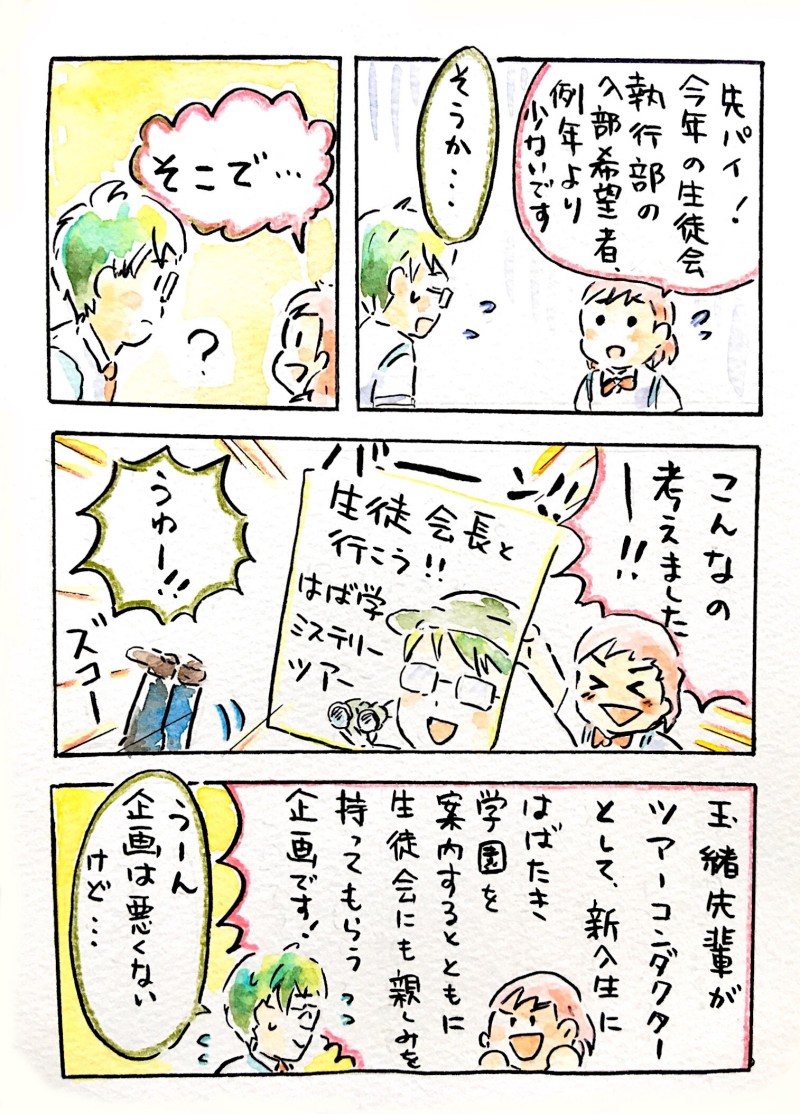 先パイ!
今年の生徒会
執行部の
入部希望者、
例年より
少ないです
そうか・・・
そこで・・・
?
こんなの
考えました
ー!!
バーン!!
生徒会長と
行こう!!
はば学
ミステリー
ツアー
うわー!!
ズコー
玉緒先輩が
ツアーコンダクター
として、新入生に
はばたき
学園を
案内するとともに
生徒会にも親しみを
持ってもらう
企画です!
うーん
企画は悪くない
けど・・・